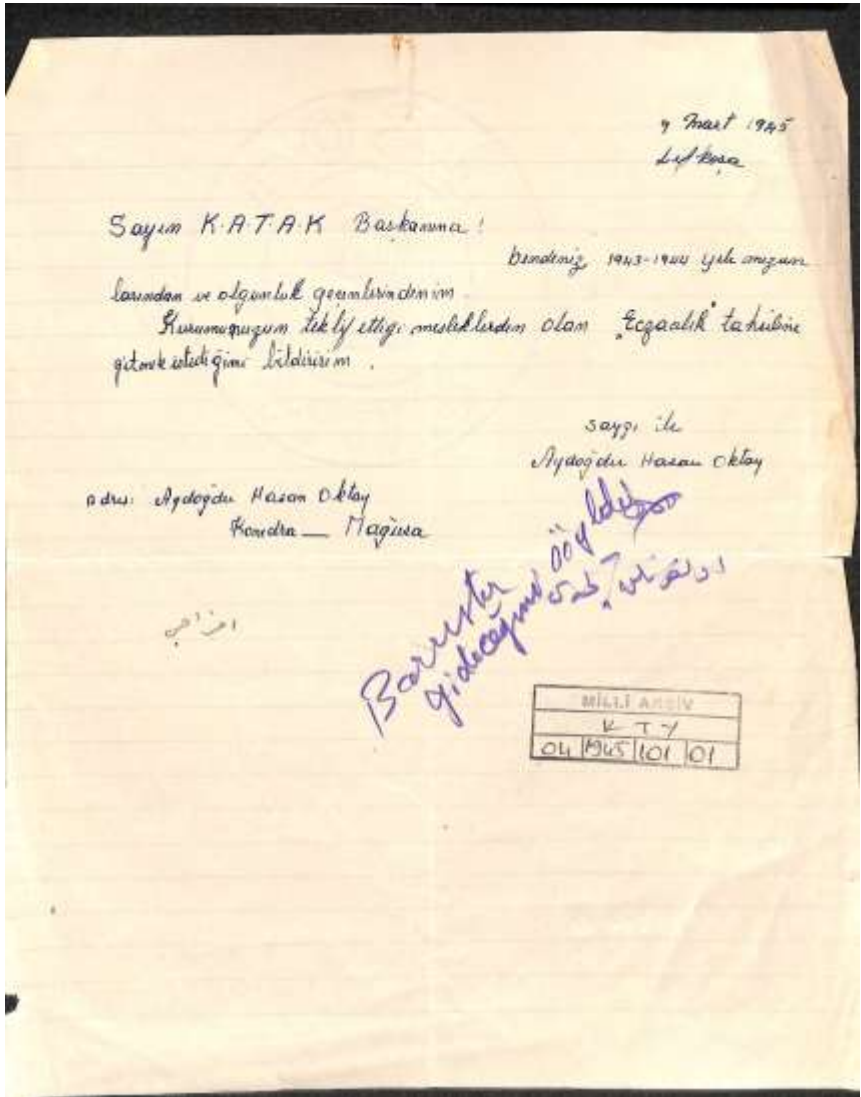 9 Mart 1945
Lefkoşa
Sayın K.A.T.A.K Başkanına!
bendeniz 1943-1944 yılı mezun
larından ve olgunluk geçenlerindenim.
Kurumumuzun teklif ettiği mesleklerden olan "Eczacılık" tahsiline
gitmek istediğimi bildiririm.
saygı ile
Aydoğdu Hasan Oktay
Adres: Aydoğdu Hasan Oktay
Konedra — Mağusa
Barrister
gideceğini söyledi
MİLLİ ARŞİV
K T Y
04 1945 101 01